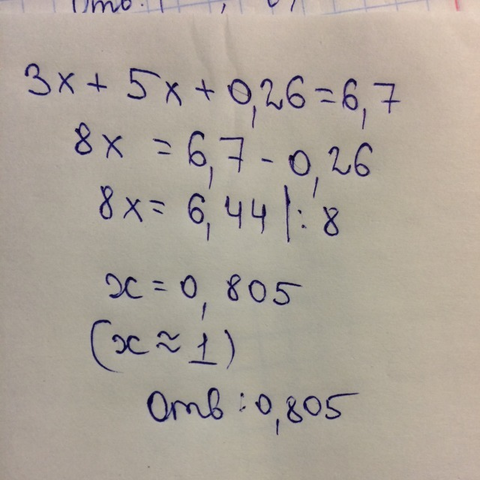 3x + 5x + 0,26 = 6,7
8x = 6,7 - 0,26
8x = 6,44 |: 8
x = 0,805
(x ≈ 1)
Отв: 0,805